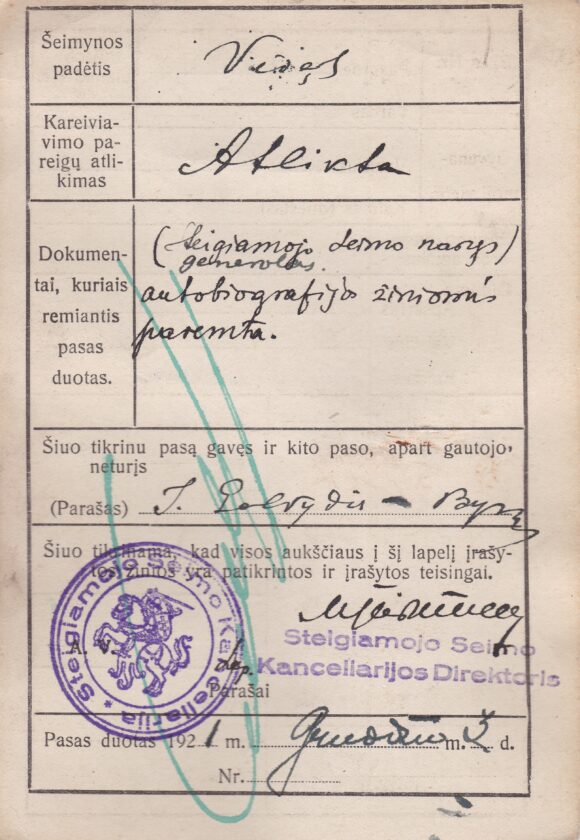 Šeimynos
padėtis
Kareivia-
vimo pa-
reigų atli-
kimas
Atlikta
Dokumen-
tai, kuriais
remiantis
pasas
duotas.
(Steigiamojo seimo narys)
generolas.
autobiografijos žiniomis
paremta.
Šiuo tikrinu pasą gavęs ir kito paso, apart gautojo
neturįs
(Parašas) J. Galvydis – Byk
Šiuo tikrinama, kad visos aukščiaus į šį lapelį įrašy-
tos žinios yra patikrintos ir įrašytos teisingai.
Steigiamojo Seimo
Kanceliarijos Direktoris
Steigiamojo Seimo Kanceliarija
A. V.
Parašai
Pasas duotas 1921 m. Gruodžio m. 2 d.
Nr.